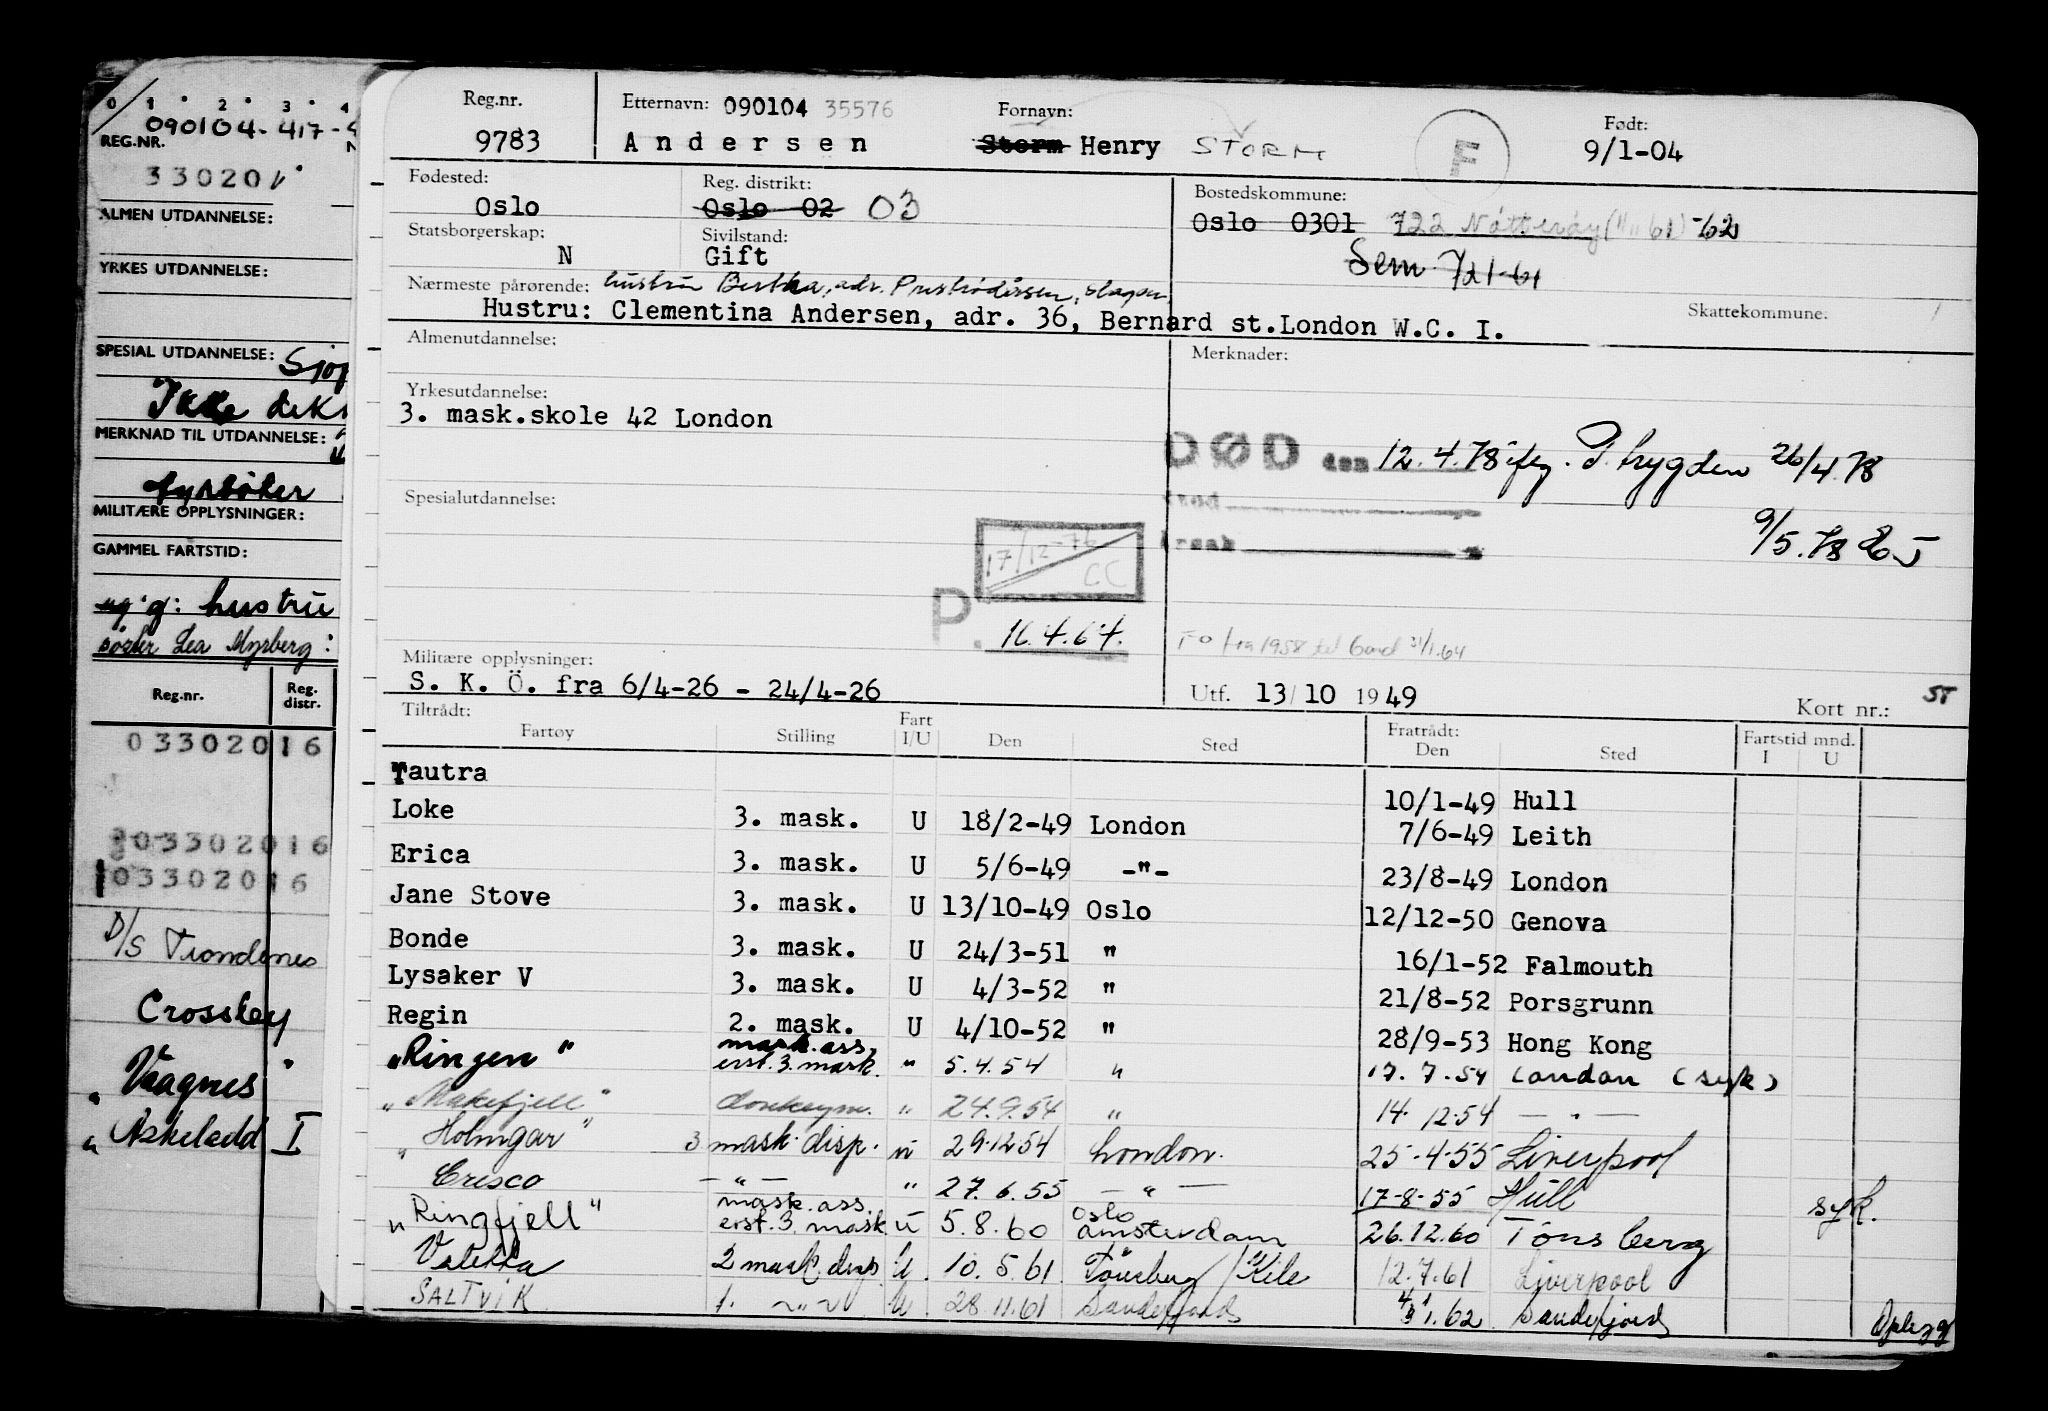 0 1 2 3 4
090104-417-
REG.NR.
330201
ALMEN UTDANNELSE:
YRKES UTDANNELSE:
SPESIAL UTDANNELSE:
Ikke
MERKNAD TIL UTDANNELSE:
fyrbøter
MILITÆRE OPPLYSNINGER:
GAMMEL FARTSTID:
g: hustru
søster Lea Myrberg:
Reg.nr. Reg. distr.
03302016
03302016
03302016
D/S Trondenes
Crossbey
" Vaagnes "
" Askeladd I
Reg.nr. Etternavn: 090104 35576 Fornavn: Født:
9783 Andersen Storm Henry STORM F 9/1-04
Fødested: Reg. distrikt: Bostedskommune:
Oslo Oslo 02 03 Oslo 0301 722 Nøtterøy (1/11 61) -62
Statsborgerskap: Sivilstand:
N Gift Sem 721-61
Nærmeste pårørende: hustru Bertha, adr. slagen.
Hustru: Clementina Andersen, adr. 36, Bernard st.London W.C. I. Skattekommune:
Almenutdannelse: Merknader:
Yrkesutdannelse:
3. mask.skole 42 London
DØD den 12.4.78 ifg. Trygden 26/4.78
Spesialutdannelse:
sted
17/12-76 CC
årsak
9/5.78
P. 16.4.64.
fra 1958 31/1.64
Militære opplysninger:
S. K. Ö. fra 6/4-26 - 24/4-26 Utf. 13/10 1949 Kort nr.: ST
Tiltrådt: Fratrådt: Fartstid mnd.
Fartøy Stilling Fart I/U Den Sted Den Sted I U
Tautra 10/1-49 Hull
Loke 3. mask. U 18/2-49 London 7/6-49 Leith
Erica 3. mask. U 5/6-49 -"- 23/8-49 London
Jane Stove 3. mask. U 13/10-49 Oslo 12/12-50 Genova
Bonde 3. mask. U 24/3-51 " 16/1-52 Falmouth
Lysaker V 3. mask. U 4/3-52 " 21/8-52 Porsgrunn
Regin 2. mask. U 4/10-52 " 28/9-53 Hong Kong
"Ringen" mask.ass. erst.3.mask. " 5.4.54 " 17.7.54 London (syk)
"Makefjell" donkeym. " 24.9.54 " 14.12.54 — " —
"Holmgar" 3 mask. disp. u 29.12.54 London. 25.4.55 Liverpool
Crisco — " — " 27.6.55 — " — 17-8-55 Hull syk.
"Ringfjell" mask.ass. erst.3.mask. u 5.8.60 Oslo Amsterdam 26.12.60 Tønsberg
Valetta 2 mask. disp U. 10.5.61 Tønsberg / Kile 12.7.61 Liverpool
SALTVIK 1. —"— U. 28.11.61 Sandefjord 1.62 Sandefjord Oplegg